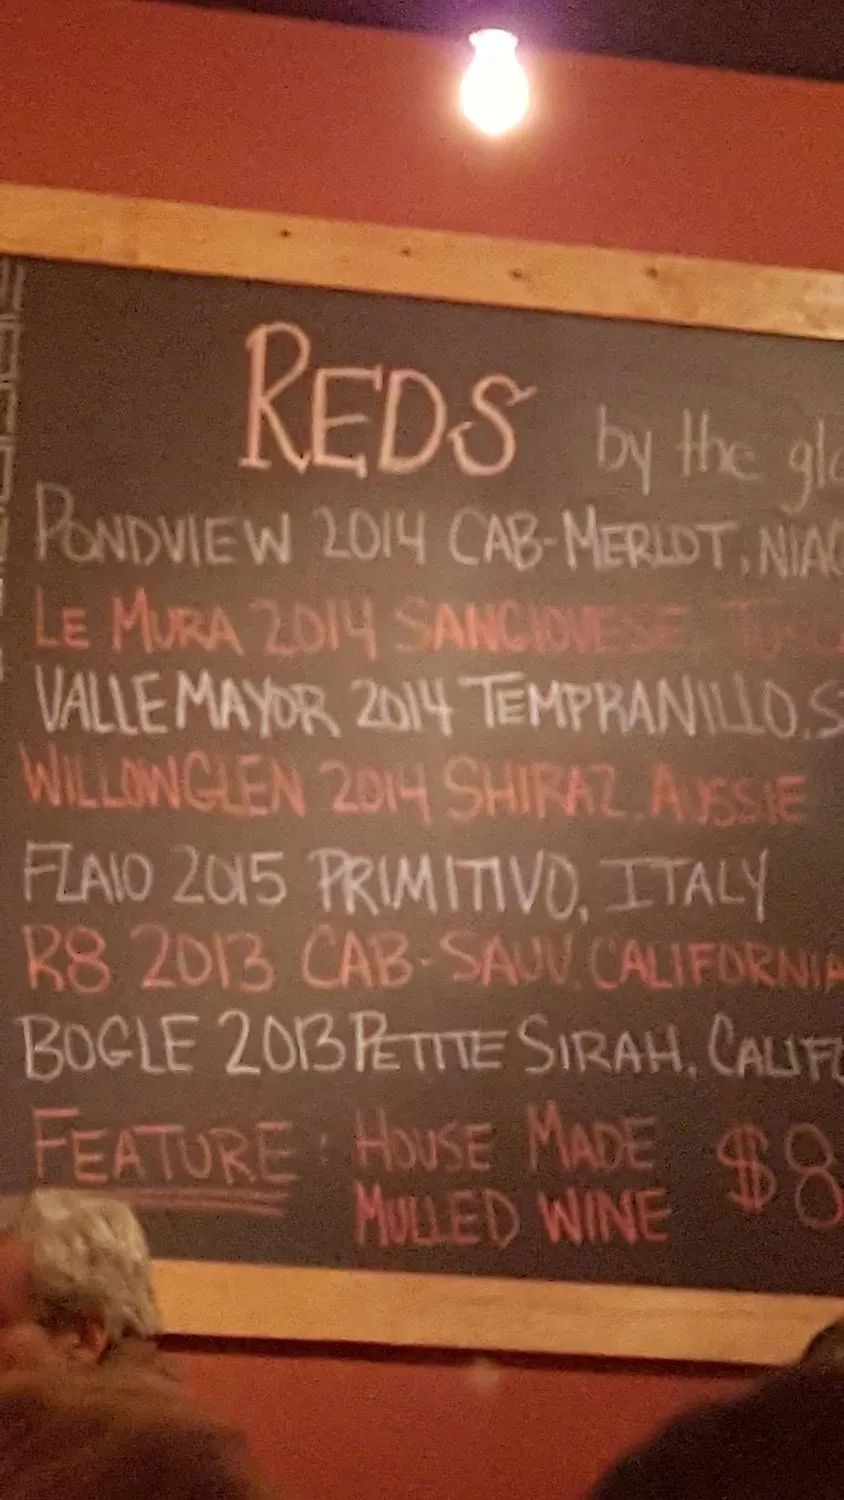 REDS by the glo
PONDVIEW 2014 CAB-MERLOT, NIAG
LE MURA 2014 SANGIOVESE, TUSCA
VALLE MAYOR 2014 TEMPRANILLO, S
WILLOWGLEN 2014 SHIRAZ, AUSSIE
FLAIO 2015 PRIMITIVO, ITALY
R8 2013 CAB-SAUV. CALIFORNIA
BOGLE 2013 PETITE SIRAH, CALIFO
FEATURE: HOUSE MADE $8
MULLED WINE